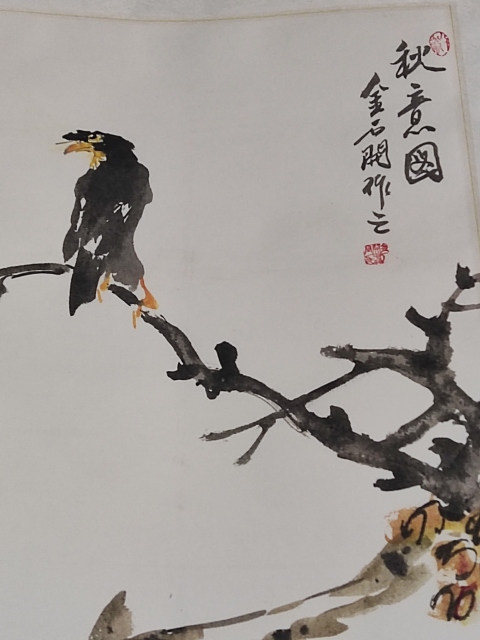 秋意図
金石開作之